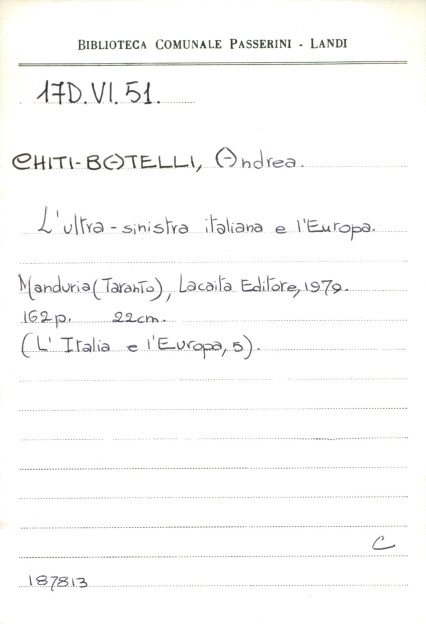 BIBLIOTECA COMUNALE PASSERINI - LANDI
17D.VI.51.
CHITI-BATELLI, Andrea.
L'ultra-sinistra italiana e l'Europa.
Manduria (Taranto), Lacaita Editore, 1979.
162 p. 22 cm.
(L'Italia e l'Europa, 5).
C
187813